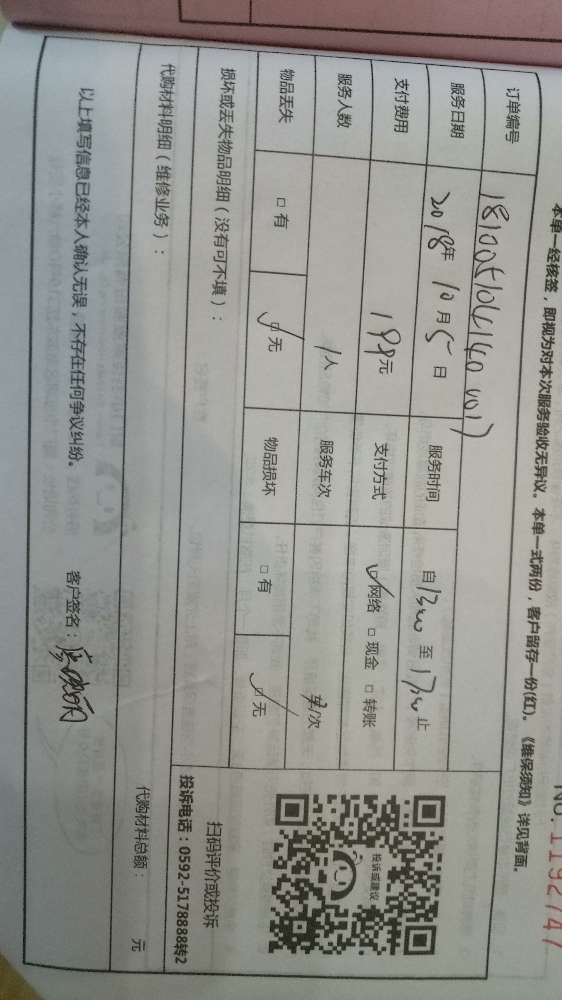 NO.1192747
本单一经核签，即视为对本次服务验收无异议。本单一式两份，客户留存一份(红)。《维保须知》详见背面。
订单编号
服务日期 2018年 10月 5日 服务时间 自 13:00 至 17:00 止
支付费用 198元 支付方式 ☑网络 □ 现金 □ 转账
服务人数 1人 服务车次 次
物品丢失 □ 有 ☑ 无 物品损坏 □ 有 ☑ 无
损坏或丢失物品明细（没有可不填）：
投诉或建议
扫码评价或投诉
投诉电话：0592-5178888转2
代购材料明细（维修业务）：
代购材料总额： 元
以上填写信息已经本人确认无误，不存在任何争议纠纷。 客户签名：